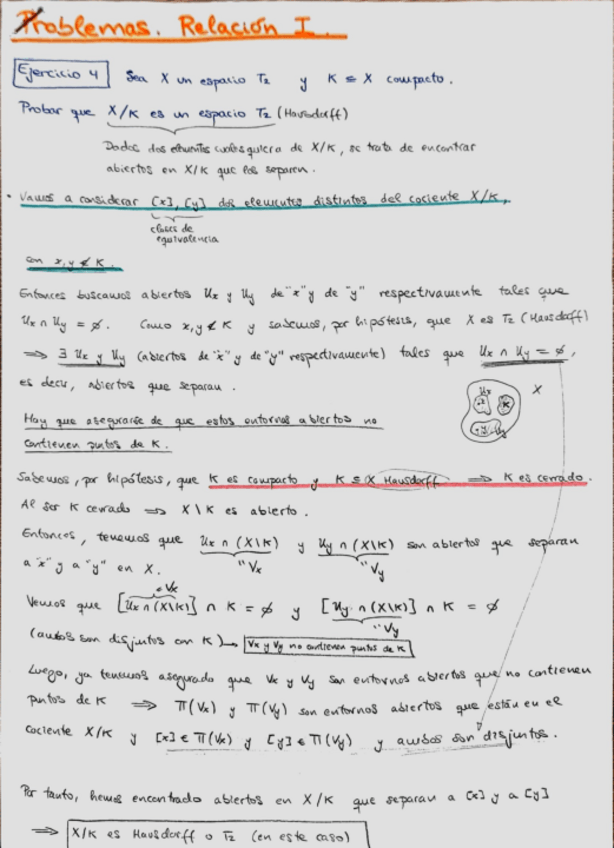 Problemas. Relación I.
Ejercicio 4 Sea X un espacio T₂ y K ⊆ X compacto.
Probar que X/K es un espacio T₂ (Hausdorff)
Dados dos elementos cualesquiera de X/K, se trata de encontrar
abiertos en X/K que los separen.
• Vamos a considerar [x], [y] dos elementos distintos del cociente X/K,
clases de
equivalencia
con x,y ∉ K.
Entonces buscamos abiertos Ux y Uy de "x" y de "y" respectivamente tales que
Ux ∩ Uy = ∅. Como x,y ∉ K y sabemos, por hipótesis, que X es T₂ (Hausdorff)
⟹ ∃ Ux y Uy (abiertos de "x" y de "y" respectivamente) tales que Ux ∩ Uy = ∅,
es decir, abiertos que separan.
Ux K X
Uy
Hay que asegurarse de que estos entornos abiertos no
contienen puntos de K.
Sabemos, por hipótesis, que K es compacto y K ⊆ X Hausdorff ⟹ K es cerrado.
Al ser K cerrado ⟹ X\K es abierto.
Entonces, tenemos que Ux ∩ (X\K) y Uy ∩ (X\K) son abiertos que separan
"Vx "Vy
a "x" y a "y" en X.
= Vx
Vemos que [Ux ∩ (X\K)] ∩ K = ∅ y [Uy ∩ (X\K)] ∩ K = ∅
"Vy
(ambos son disjuntos con K) → Vx y Vy no contienen puntos de K
Luego, ya tenemos asegurado que Vx y Vy son entornos abiertos que no contienen
puntos de K ⟹ π(Vx) y π(Vy) son entornos abiertos que están en el
cociente X/K y [x] ∈ π(Vx) y [y] ∈ π(Vy) y ambos son disjuntos.
Por tanto, hemos encontrado abiertos en X/K que separan a [x] y a [y]
⟹ X/K es Hausdorff o T₂ (en este caso)